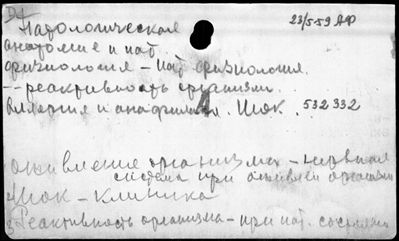 Патологическая 23/5-59 АФ
анатомия и пат.
физиология – пат. физиология.
-- реактивность организм.
аллергия и анафилаксия. Шок. 532 332
оживление организма – нервная
система при оживлен организма
Шок – клиника
Реактивность организма – при пат. состояни